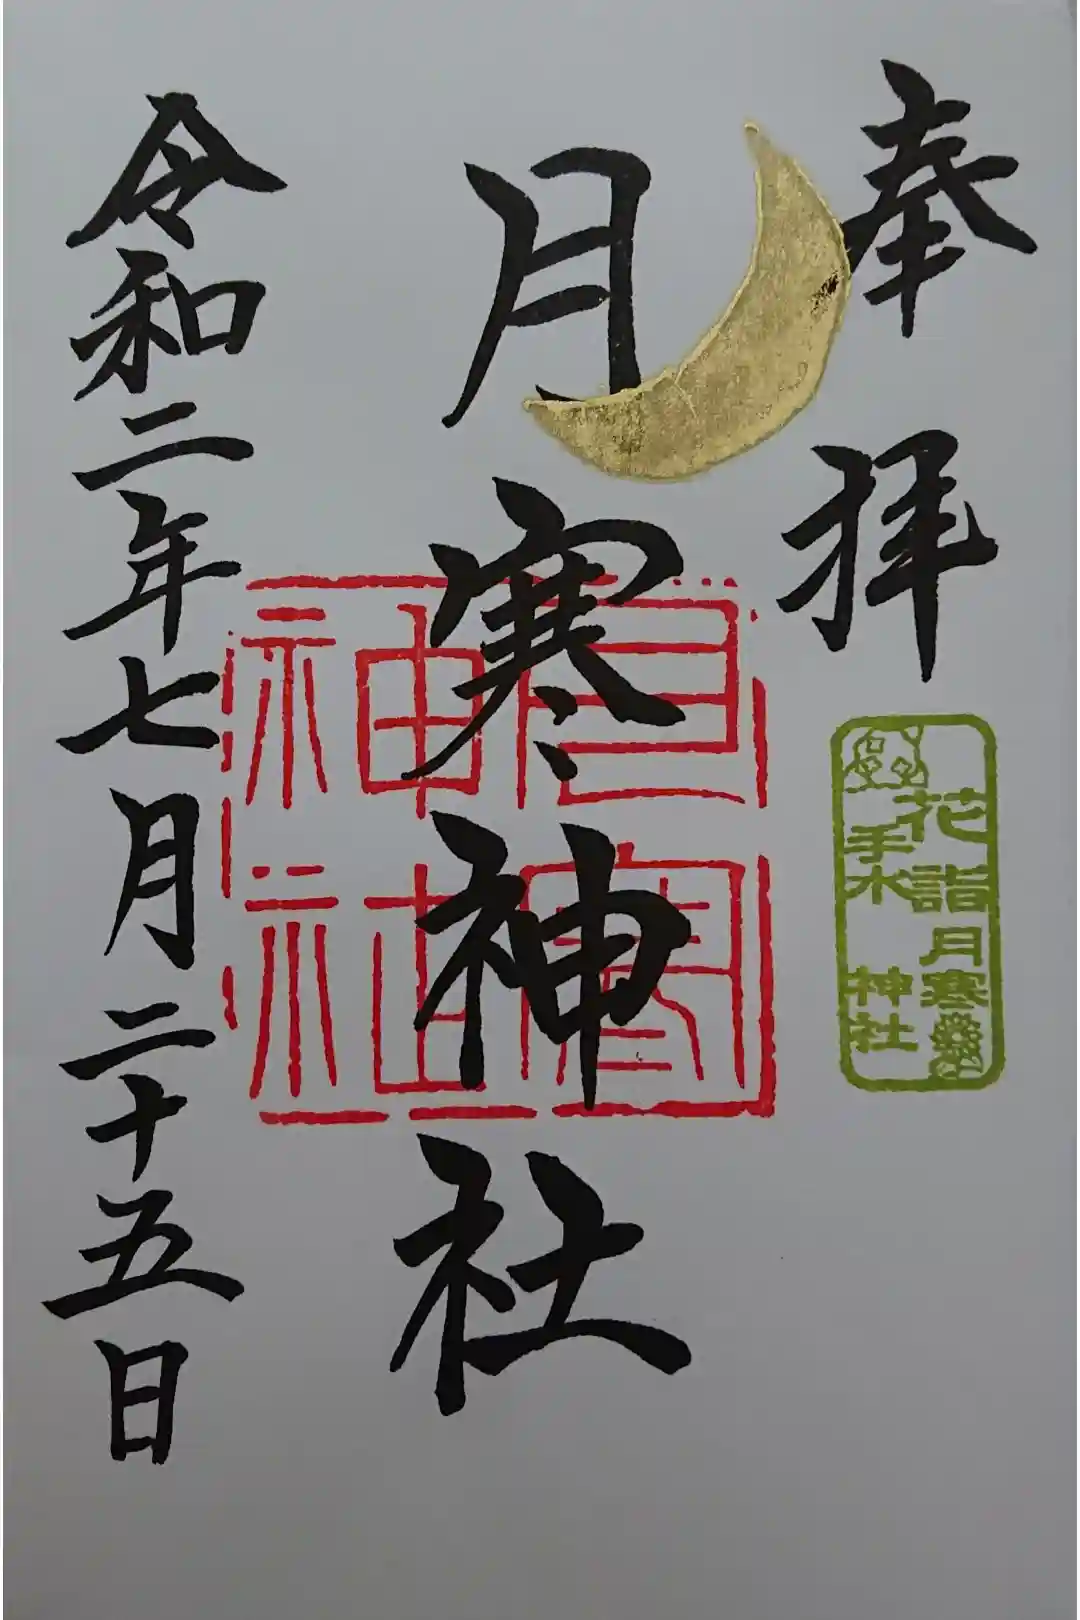 奉拝
月寒神社
令和二年七月二十五日
月寒
神社
花詣
手水
月寒
神社